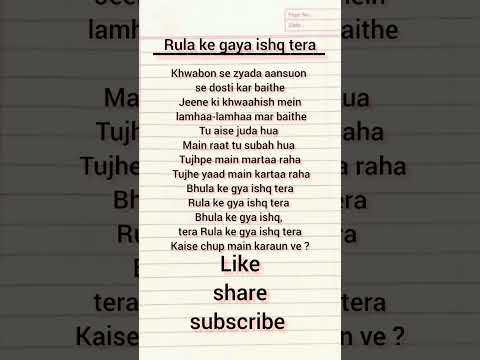 Page No.:
Date:
Rula ke gaya ishq tera
Khwabon se zyada aansuon
se dosti kar baithe
Jeene ki khwaahish mein
lamhaa-lamhaa mar baithe
Tu aise juda hua
Main raat tu subah hua
Tujhpe main martaa raha
Tujhe yaad main kartaa raha
Bhula ke gya ishq tera
Rula ke gya ishq tera
Bhula ke gya ishq,
tera Rula ke gya ishq tera
Kaise chup main karaun ve ?
Like
share
subscribe